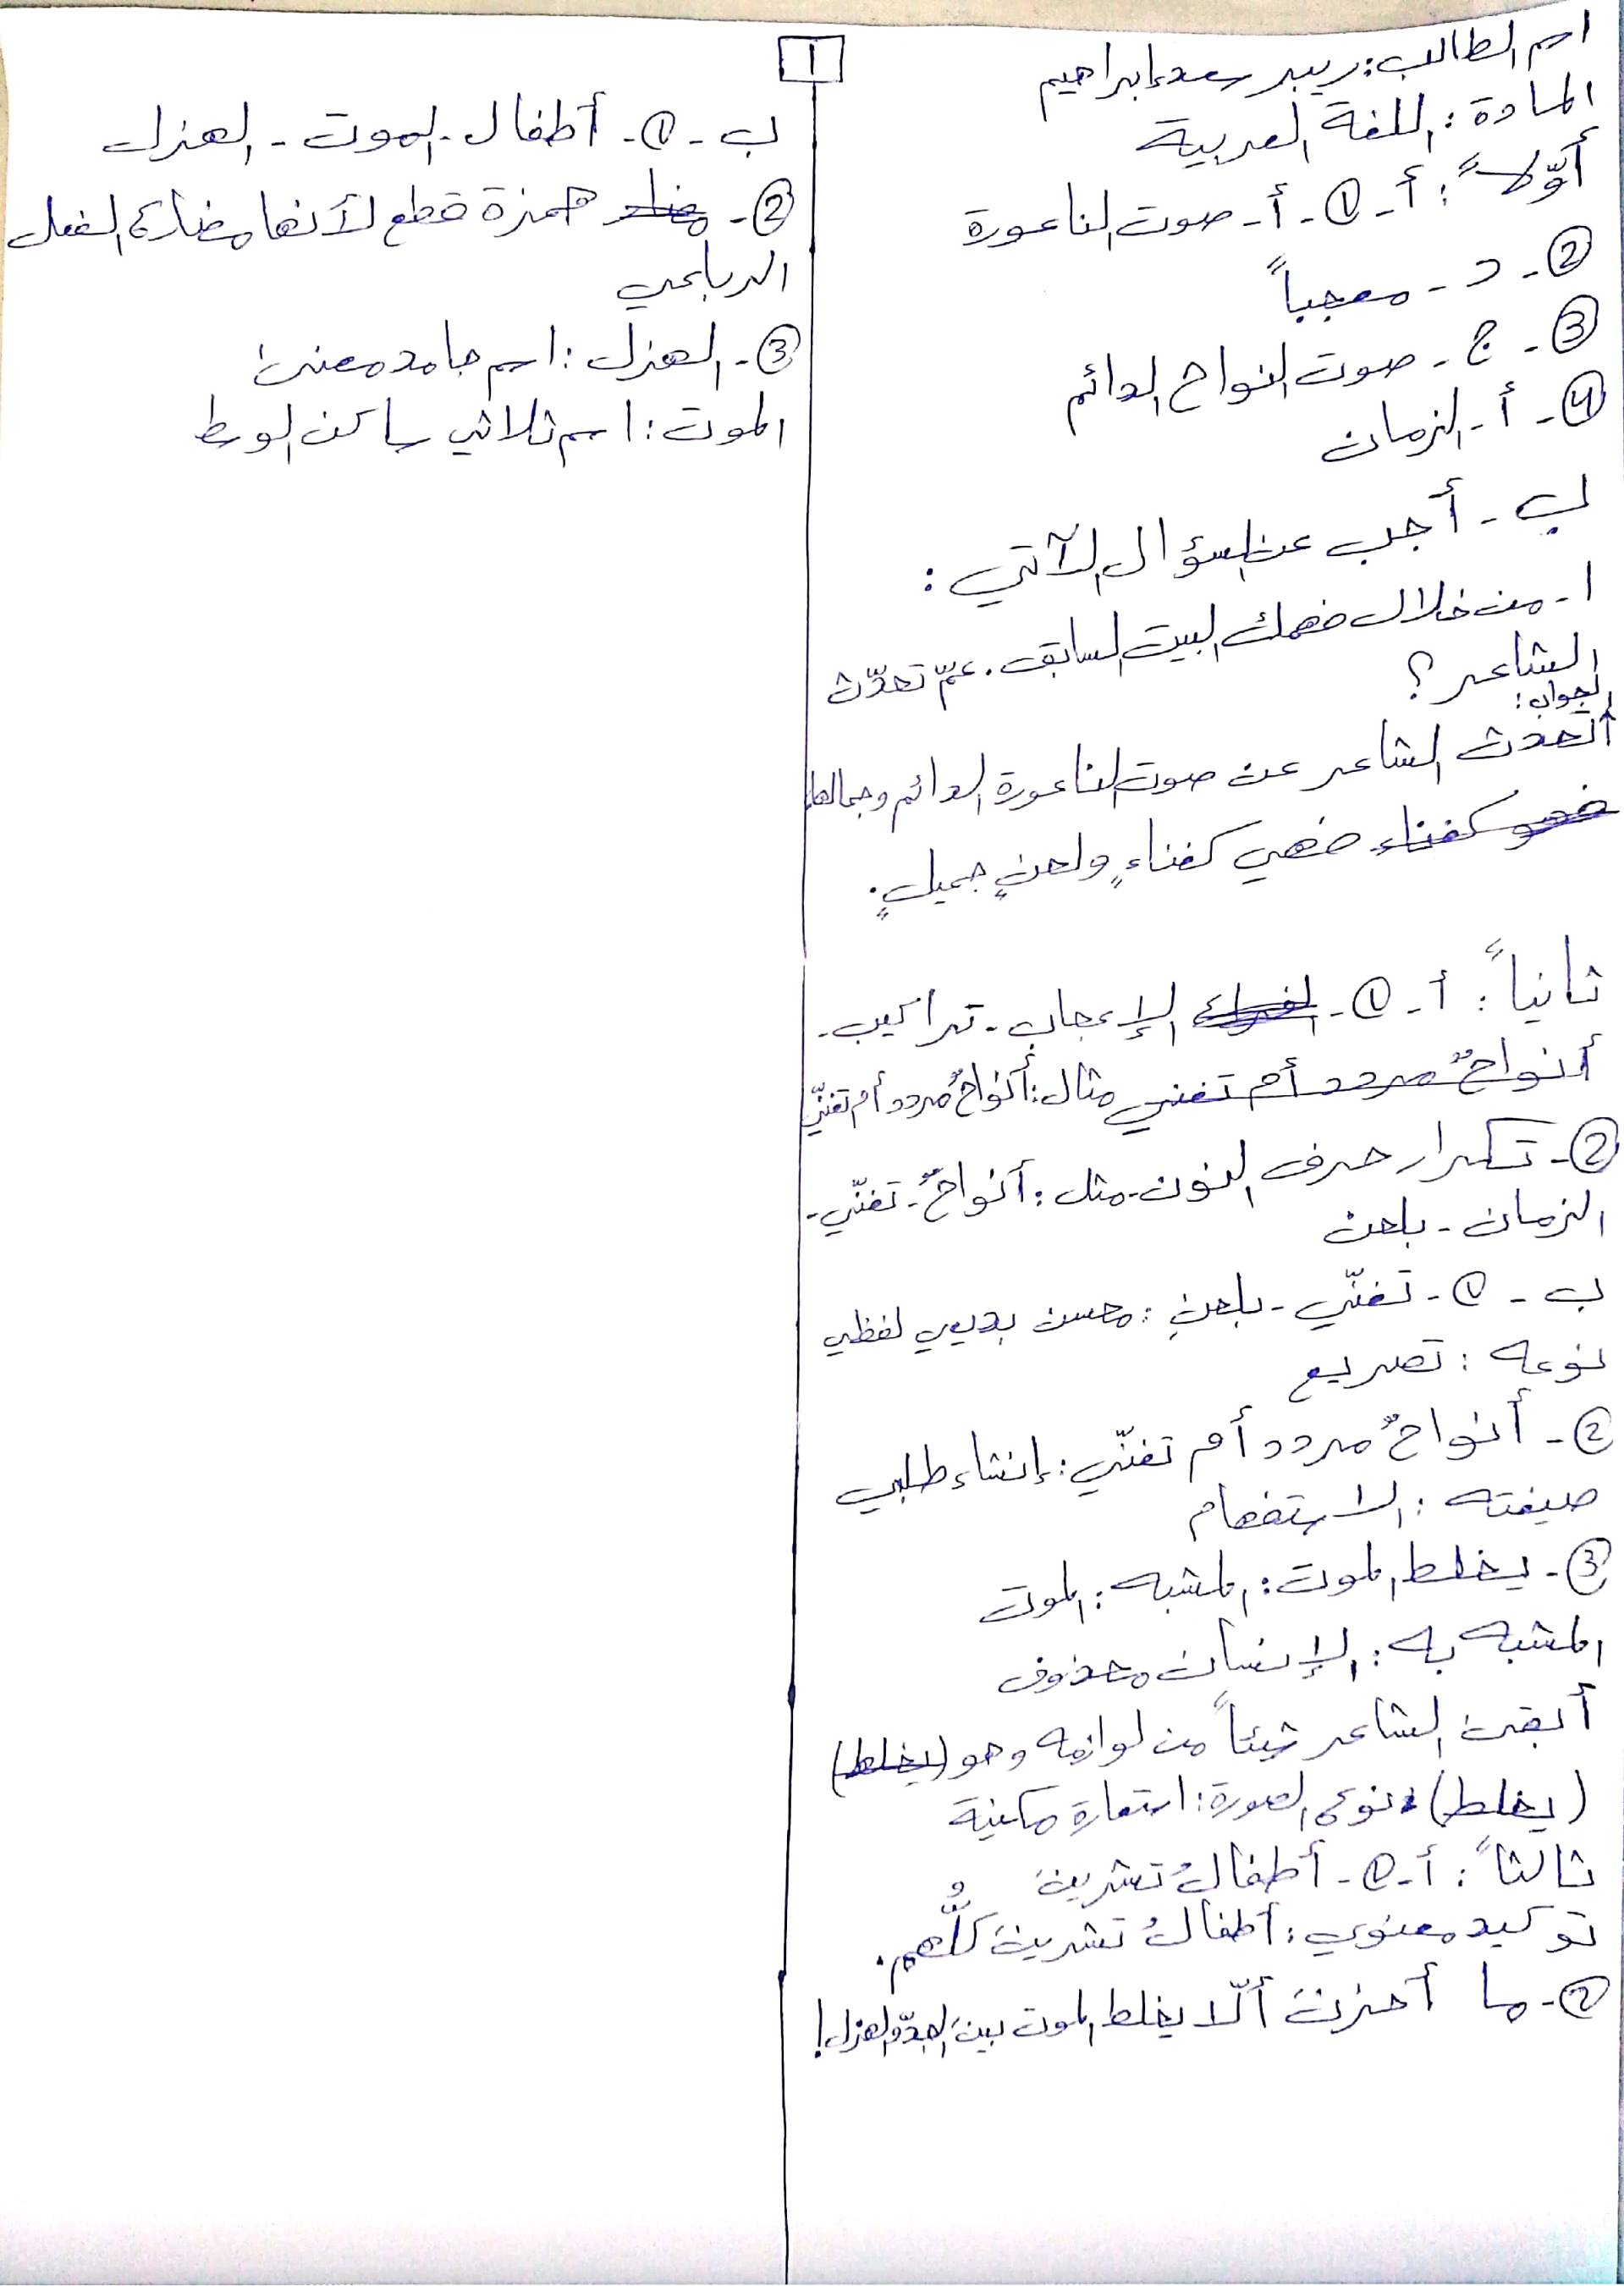 1
اسم الطالب: ريبر سعد إبراهيم
المادة: اللغة العربية
أوّلاً: أ - 1 - أ - صوت الناعورة
2 - د - معجباً
3 - ج - صوت النواح الدائم
4 - أ - الزمان
ب - أجب عن السؤال الآتي:
1 - من خلال فهمك البيت السابق. عمّ تحدّث
الشاعر؟
الجواب:
تحدث الشاعر عن صوت الناعورة الدائم وجمالها
فهو كغناء فهي كغناءٍ ولحنٍ جميلٍ.
ثانياً: أ - 1 - الإعجاب - تراكيب -
أنواحٌ مردد أم تغني مثال: أنواحٌ مردد أم تغنّي
2 - تكرار حرف النون - مثل: أنواحٌ - تغنّي -
الزمان - بلحن
ب - 1 - تغنّي - بلحنِ: محسن بديعي لفظي
نوعه: تصريع
2 - أنواحٌ مردد أم تغنّي: إنشاء طلبي
صيغته: الاستفهام
3 - يخلط الموت: المشبه: الموت
المشبه به: الإنسان محذوف
أبقى الشاعر شيئاً من لوازمه وهو (يخلط)
(يخلط) نوع الصورة: استعارة مكنية
ثالثاً: أ - 1 - أطفالُ تشرينَ
توكيد معنوي: أطفالُ تشرينَ كلُّهم.
2 - ما أحزنَ ألّا يخلط الموت بين الجدّ والهزل!
ب - 1 - أطفال - الموت - الهزل
2 - همزة قطع لأنها مضارع الفعل
الرباعي
3 - الهزل: اسم جامد معنى
الموت: اسم ثلاثي ساكن الوسط